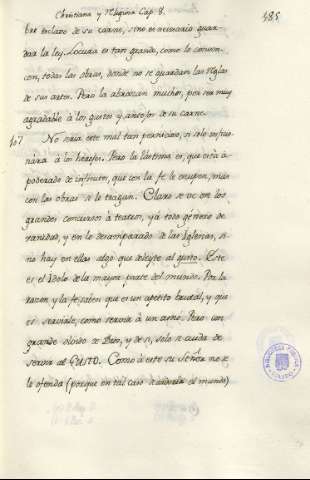 Christiana y Religiosa Cap. 8. 485
bre esclavo de su carne, sino es necesario guar-
dar la ley. Locura es tan grande, como lo conven-
cen, todas las obras, donde no se guardan las reglas
de sus artes. Pero la abrazan muchos, por ser muy
agradable à los gustos y antojos de su carne.
107 No seria este mal tan pernicioso, si solo inficio-
nàra à los hereges. Pero la lastima es, que està à
poderado de infinitos, que con la fe le escupen, mas
con las obras se le tragan. Claro se ve en los
grandes concursos à teatros, yà todo género de
vanidad, y en lo desamparado de las Iglesias, si
no hay en ellas algo que deleyte al gusto. Este
es el Idolo de la mayor parte del mundo. Por la
razon y la fe, saben que es un apetito brutal, y que
es servirle, como servir à un asno. Pero con
grande olvido de Dios, y de si, solo se cuida de
servir al GUSTO. Como à este su Señor no se
le ofenda (porque en tal caso se undiria el mundo)